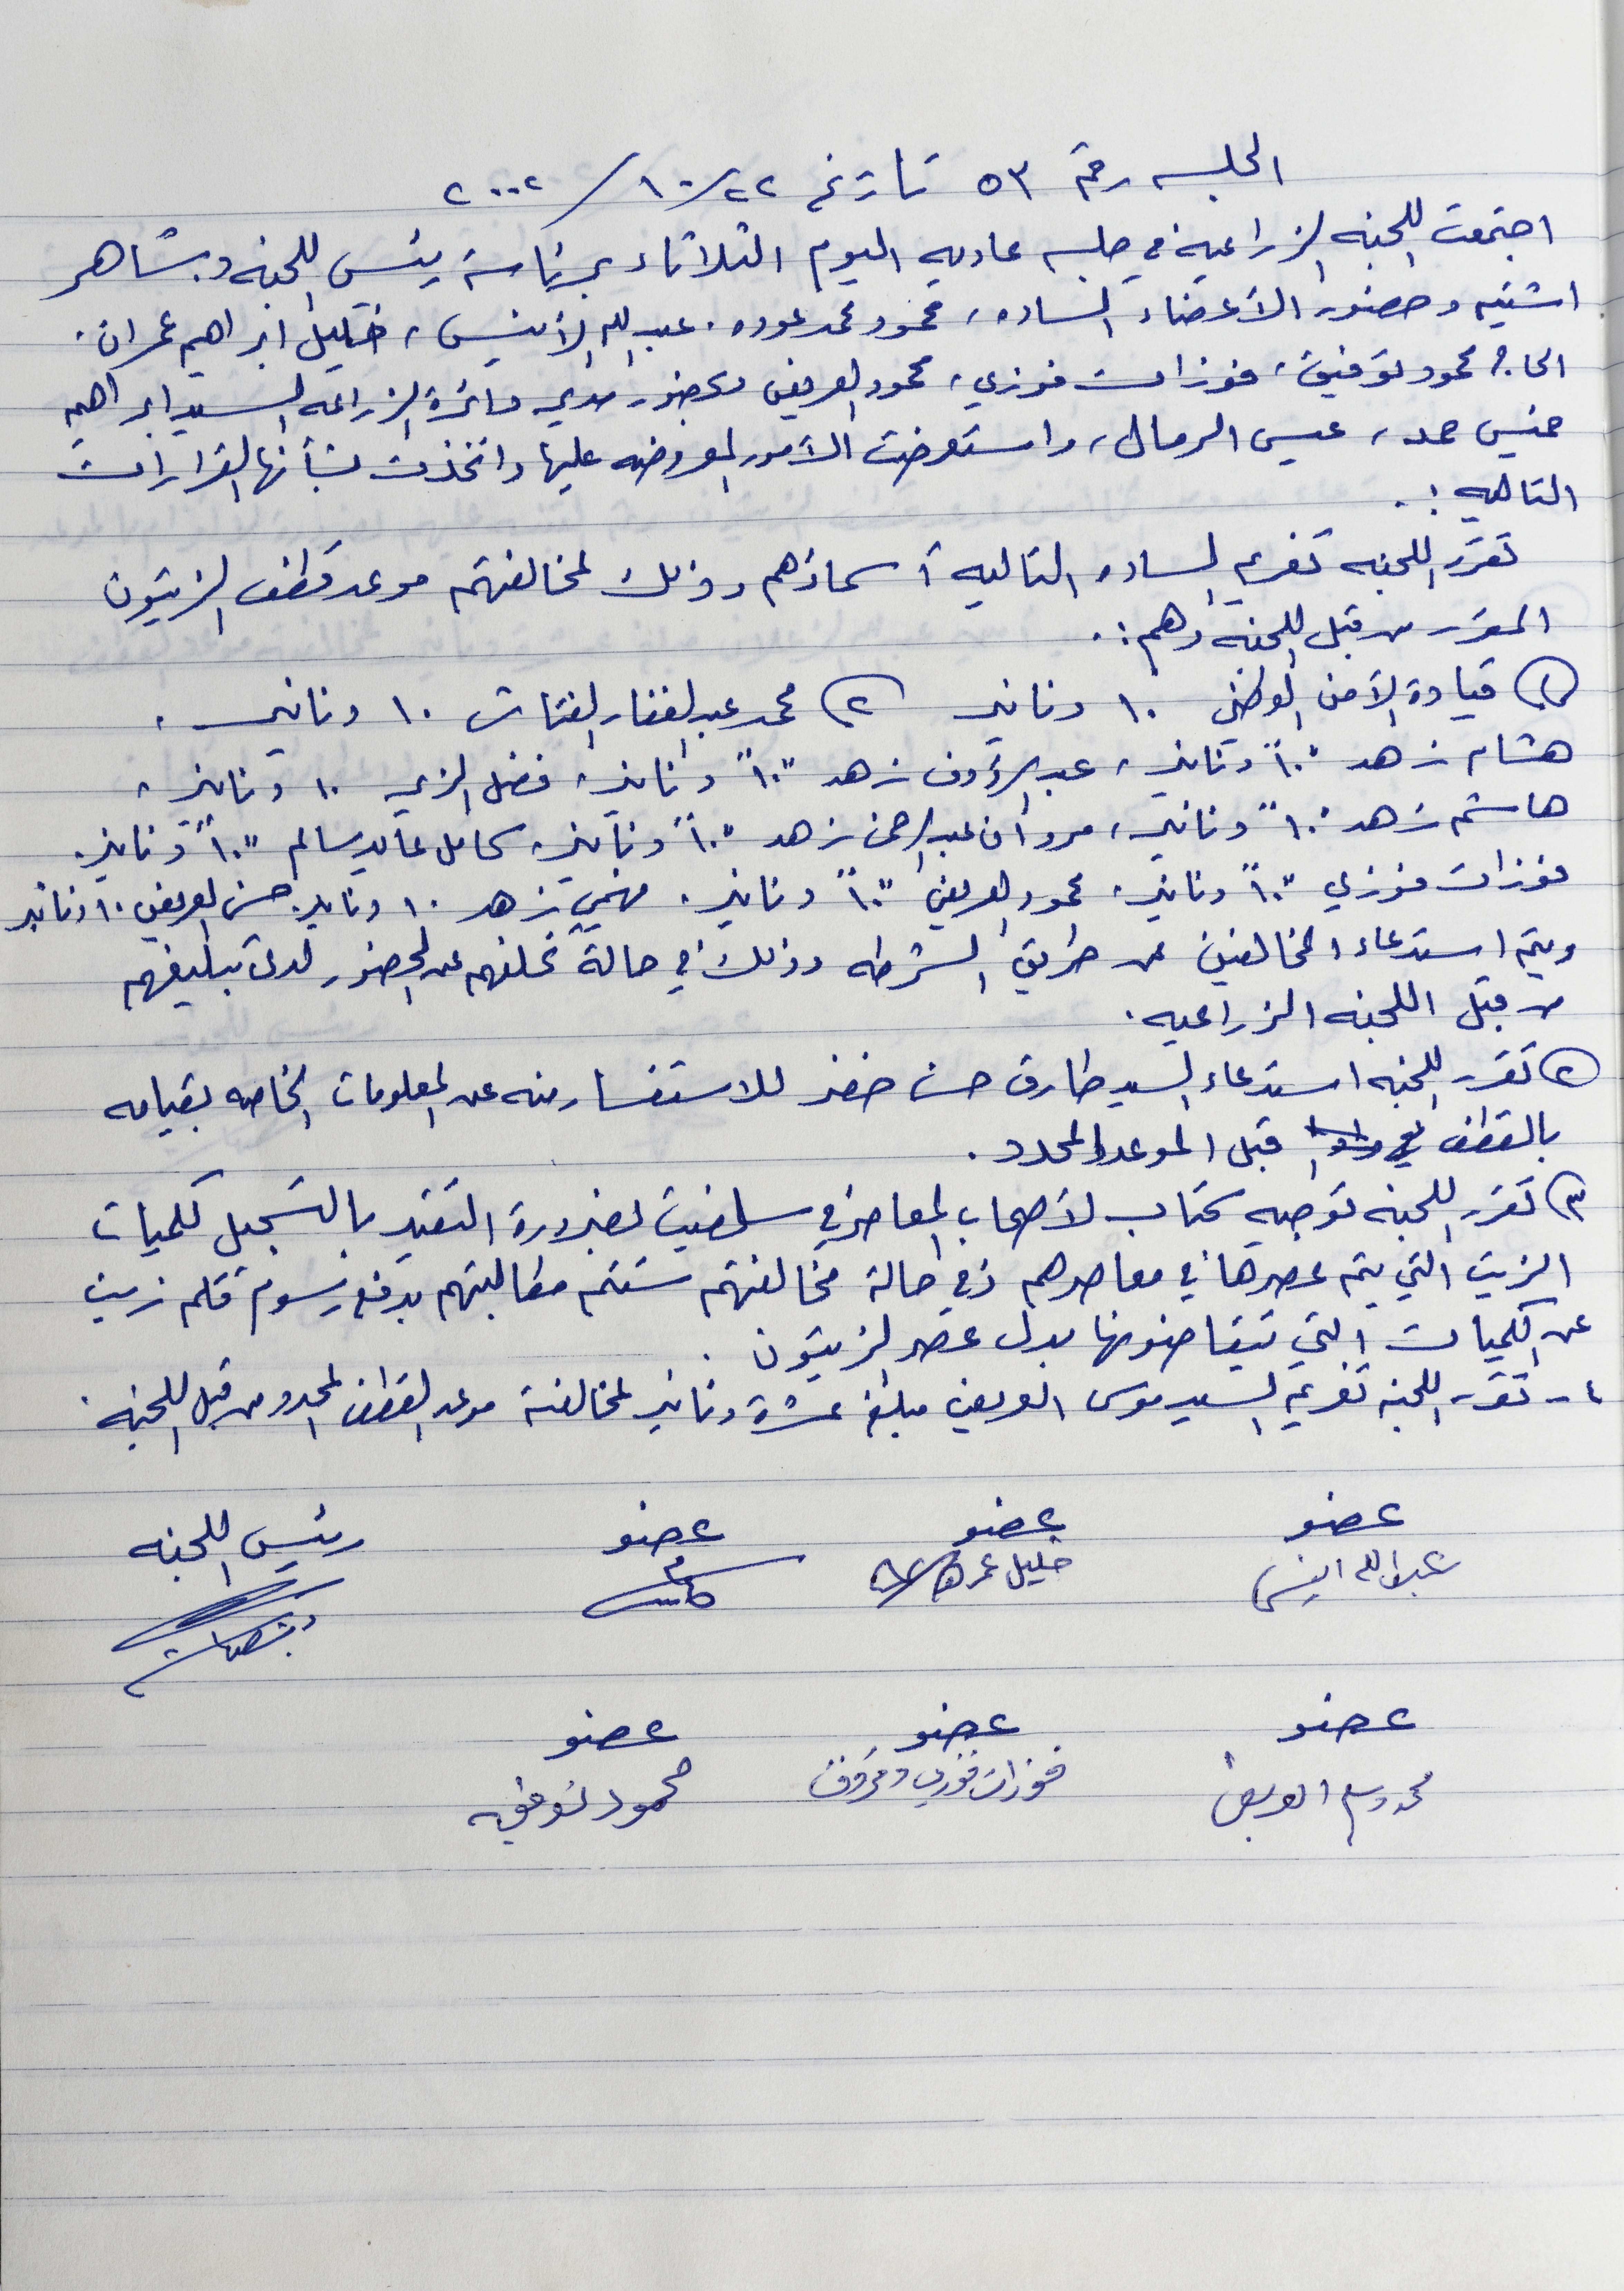 الجلسه رقم ٥٣ تاريخ ٢٢/١٠/٢٠٠٢
اجتمعت اللجنه الزراعية في جلسه عاديه اليوم الثلاثاء برئاسة رئيس اللجنه د. شاهر
اشتيه وحضور الأعضاء الساده، محمود محمد عوده. عبد الله الأنيس، خليل ابراهيم عمران.
الحاج محمود توفيق، فوزات فوزي، محمود العريض وبحضور مدير دائرة الزراعه السيد ابراهيم
حمد، عيسى الرمال، واستعرضت الأمور المعروضه عليها واتخذت بشأنها القرارات
التاليه :.
تقرر اللجنه تغريم الساده التاليه أسماؤهم وذلك لمخالفتهم موعد قطف الزيتون
المقرر من قبل اللجنه وهم :.
١) قيادة الأمن الوطني ١٠ دنانير ٢) محمد عبد الغفار الفتاش ١٠ دنانير ،
هشام زهد "١٠" دنانير، عبد الرؤوف زهد "١٠" دنانير، فضل الزير ١٠ دنانير،
هاشم زهد "١٠" دنانير، مروان عبد الرحمن زهد "١٠" دنانير، كامل عايد سالم "١٠" دنانير.
فوزات فوزي "١٠" دنانير، محمود العريض "١٠" دنانير. فهمي زهد ١٠ دنانير. حسن العريض ١٠ دنانير
ويتم استدعاء المخالفين عن طريق الشرطه وذلك في حالة تخلفهم عن الحضور لدى تبليغهم
من قبل اللجنه الزراعيه.
٢) تقرر اللجنه استدعاء السيد طارق حسن خفر للاستفسار منه عن المعلومات الخاصه بقيامه
بالقطف قبل الموعد المحدد.
٣) تقرر اللجنه توجيه كتاب لأصحاب المعاصر في سلفيت لضرورة التقيد بالتسجيل لكميات
الزيت التي يتم عصرها في معاصرهم وفي حالة مخالفتهم ستتم مطالبتهم بدفع رسوم قلم زيت
عن الكميات التي يتقاضونها بدل عصر الزيتون.
٤- تقرر اللجنه تغريم السيد موسى العريض مبلغ عشرة دنانير لمخالفته موعد القطف المحدد من قبل اللجنه.
عضو عضو عضو رئيس اللجنه
عبدالله انيس خليل عمران
عضو عضو عضو
العريض فوزات فوزي محمود توفيق